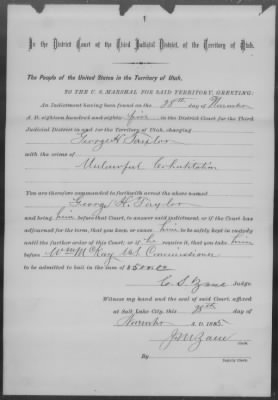 In the District Court of the Third Judicial District, of the Territory of Utah.
The People of the United States in the Territory of Utah,
TO THE U. S. MARSHAL FOR SAID TERRITORY, GREETING:
An Indictment having been found on the 28th day of November
A. D. eighteen hundred and eighty five in the District Court for the Third
Judicial District in and for the Territory of Utah, charging
George H. Taylor
with the crime of
Unlawful Cohabitation
You are therefore commanded to forthwith arrest the above named
George H. Taylor
and bring him before that Court, to answer said indictment, or if the Court has
adjourned for the term, that you keep, or cause him to be safely kept in custody
until the further order of this Court; or if he require it, that you take him
before Wm McKay U.S. Commissioner
to be admitted to bail in the sum of
C. S. Zane Judge.
Witness my hand and the seal of said Court, affixed
at Salt Lake City, this 28th day of
November A. D. 1885
Clerk.
By Deputy Clerk.